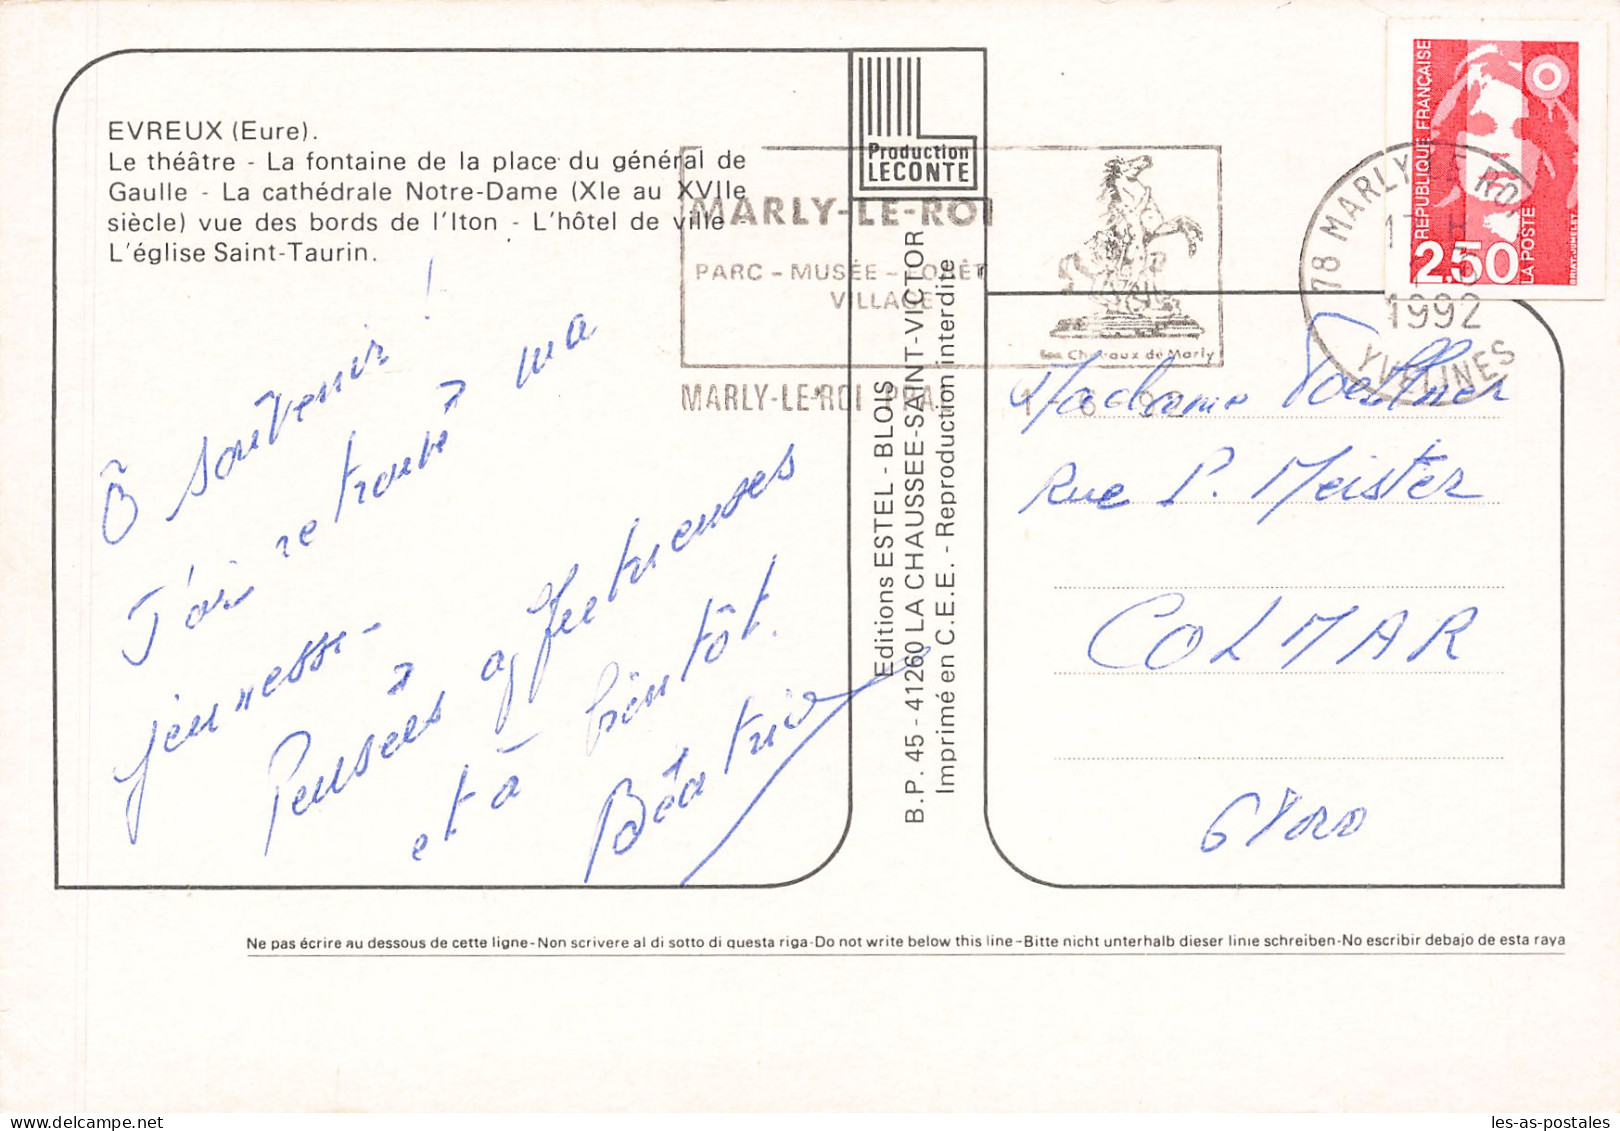 EVREUX (Eure).
Le théâtre - La fontaine de la place du général de
Gaulle - La cathédrale Notre-Dame (XIe au XVIIe
siècle) vue des bords de l'Iton - L'hôtel de ville -
L'église Saint-Taurin.
Ô souvenir !
J'ai retrouvé ma
jeunesse -
Pensées affectueuses
et à bientôt.
Béatrice
Production
LECONTE
MARLY-LE-ROI
PARC - MUSÉE - FORÊT
VILLAGE
Les Chevaux de Marly
MARLY-LE-ROI PPAL
1-6-92
Editions ESTEL - BLOIS
B.P. 45 - 41260 LA CHAUSSEE-SAINT-VICTOR
Imprimé en C.E.E. - Reproduction interdite
REPUBLIQUE FRANÇAISE
2,50
LA POSTE
BRIAT-JUMELET
78 MARLY LE ROI
17 H
1992
YVELINES
Madame
Rue P. Meister
COLMAR
68000
Ne pas écrire au dessous de cette ligne-Non scrivere al di sotto di questa riga-Do not write below this line-Bitte nicht unterhalb dieser linie schreiben-No escribir debajo de esta raya
les-as-postales